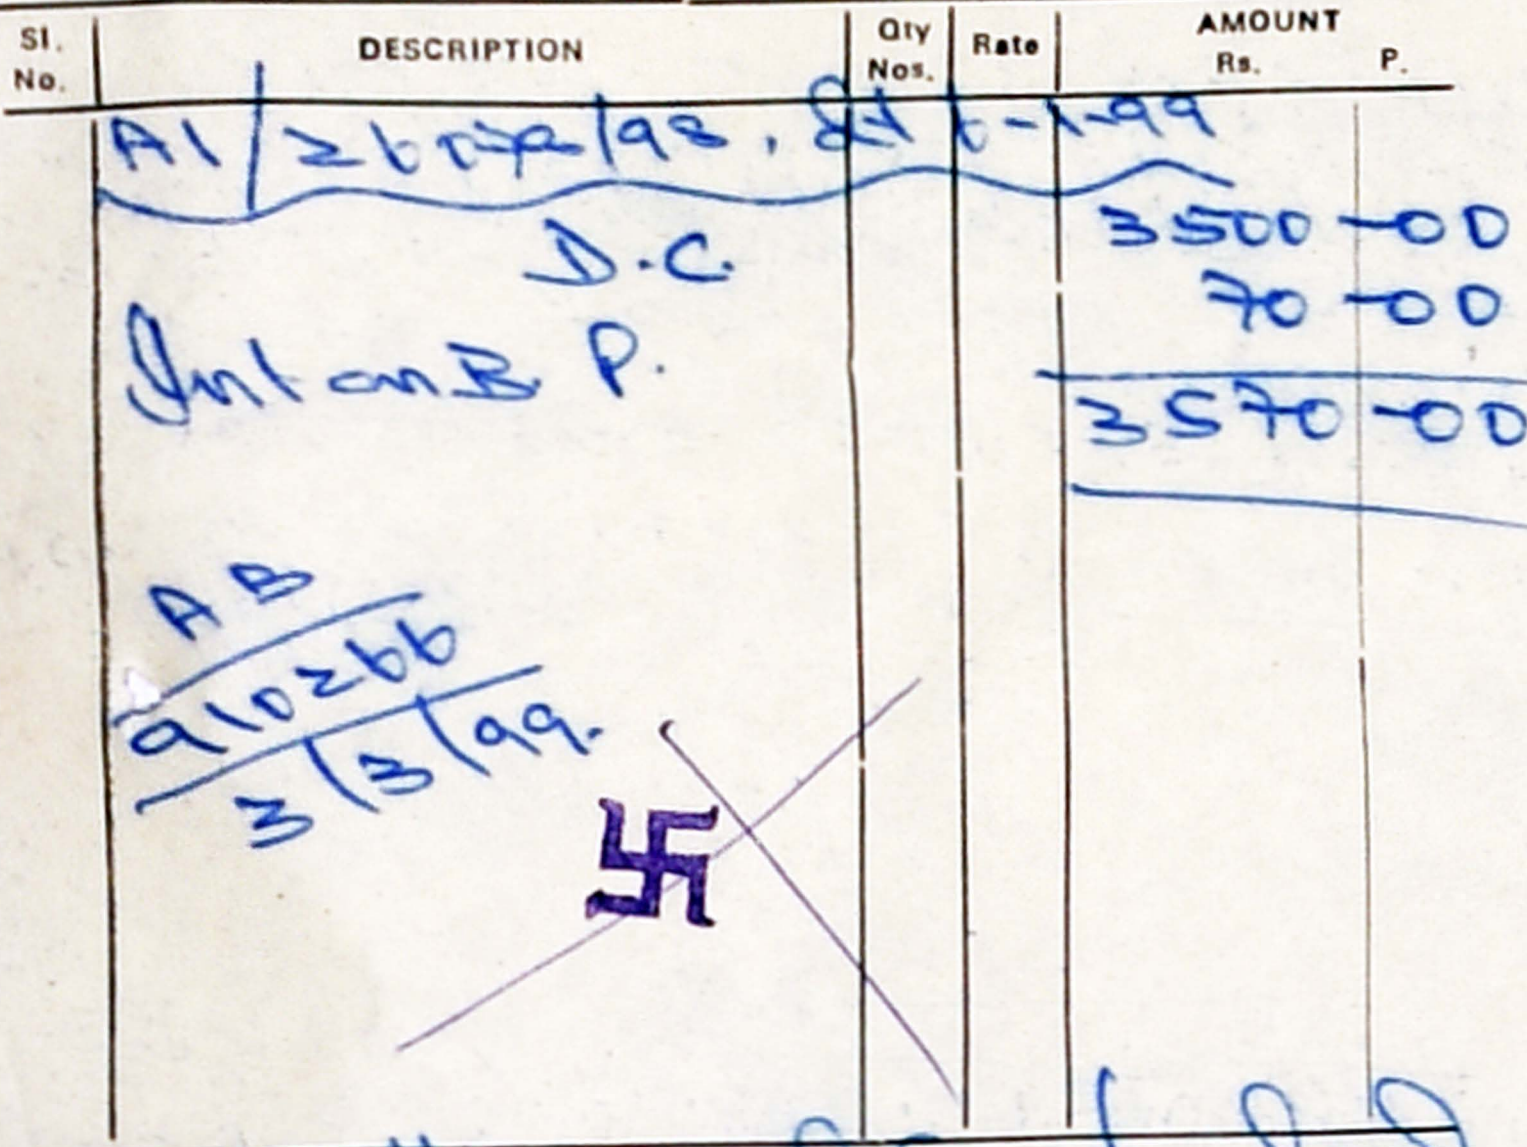 Sl. No. DESCRIPTION Qty Nos. Rate AMOUNT Rs. P.
A1/ /98, dt 6-1-99
3500-00
D.C. 70-00
Int on B. P. 3570-00
AB
910266
3/3/99.